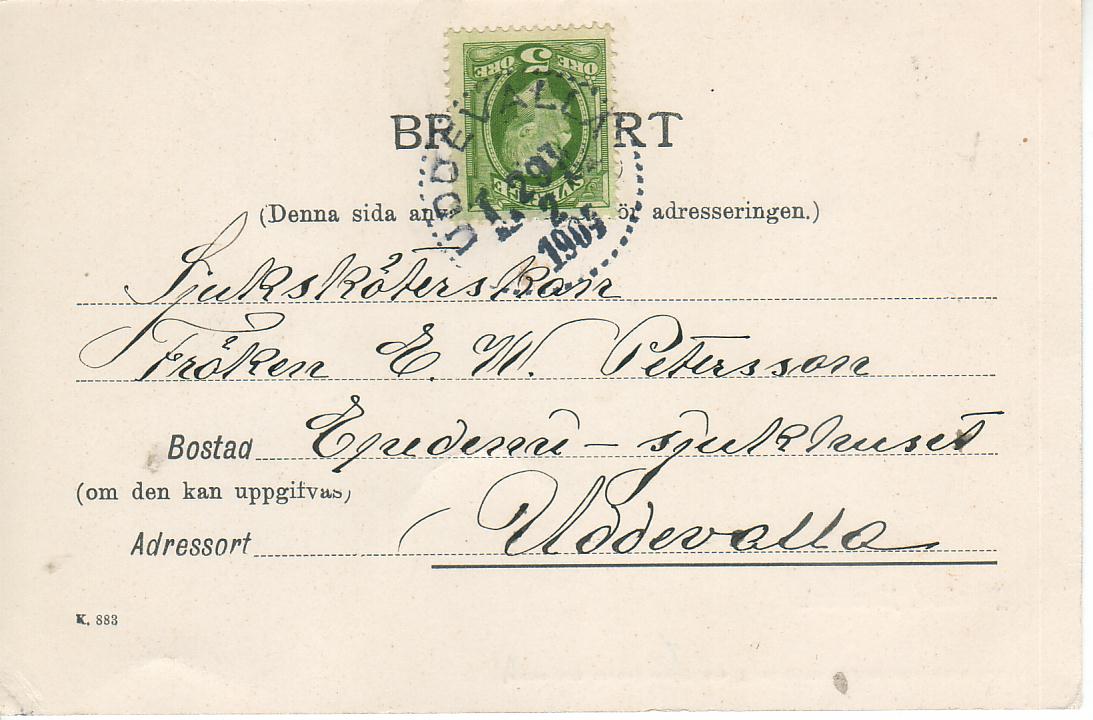 5
ÖRE ÖRE
SVERIGE
UDDEVALLA
1905
BR RT
(Denna sida anv ör adresseringen.)
Sjuksköterskan
Fröken E. W. Petersson
Bostad Epidemi - sjukhuset
(om den kan uppgifvas)
Adressort Uddevalla
K. 883